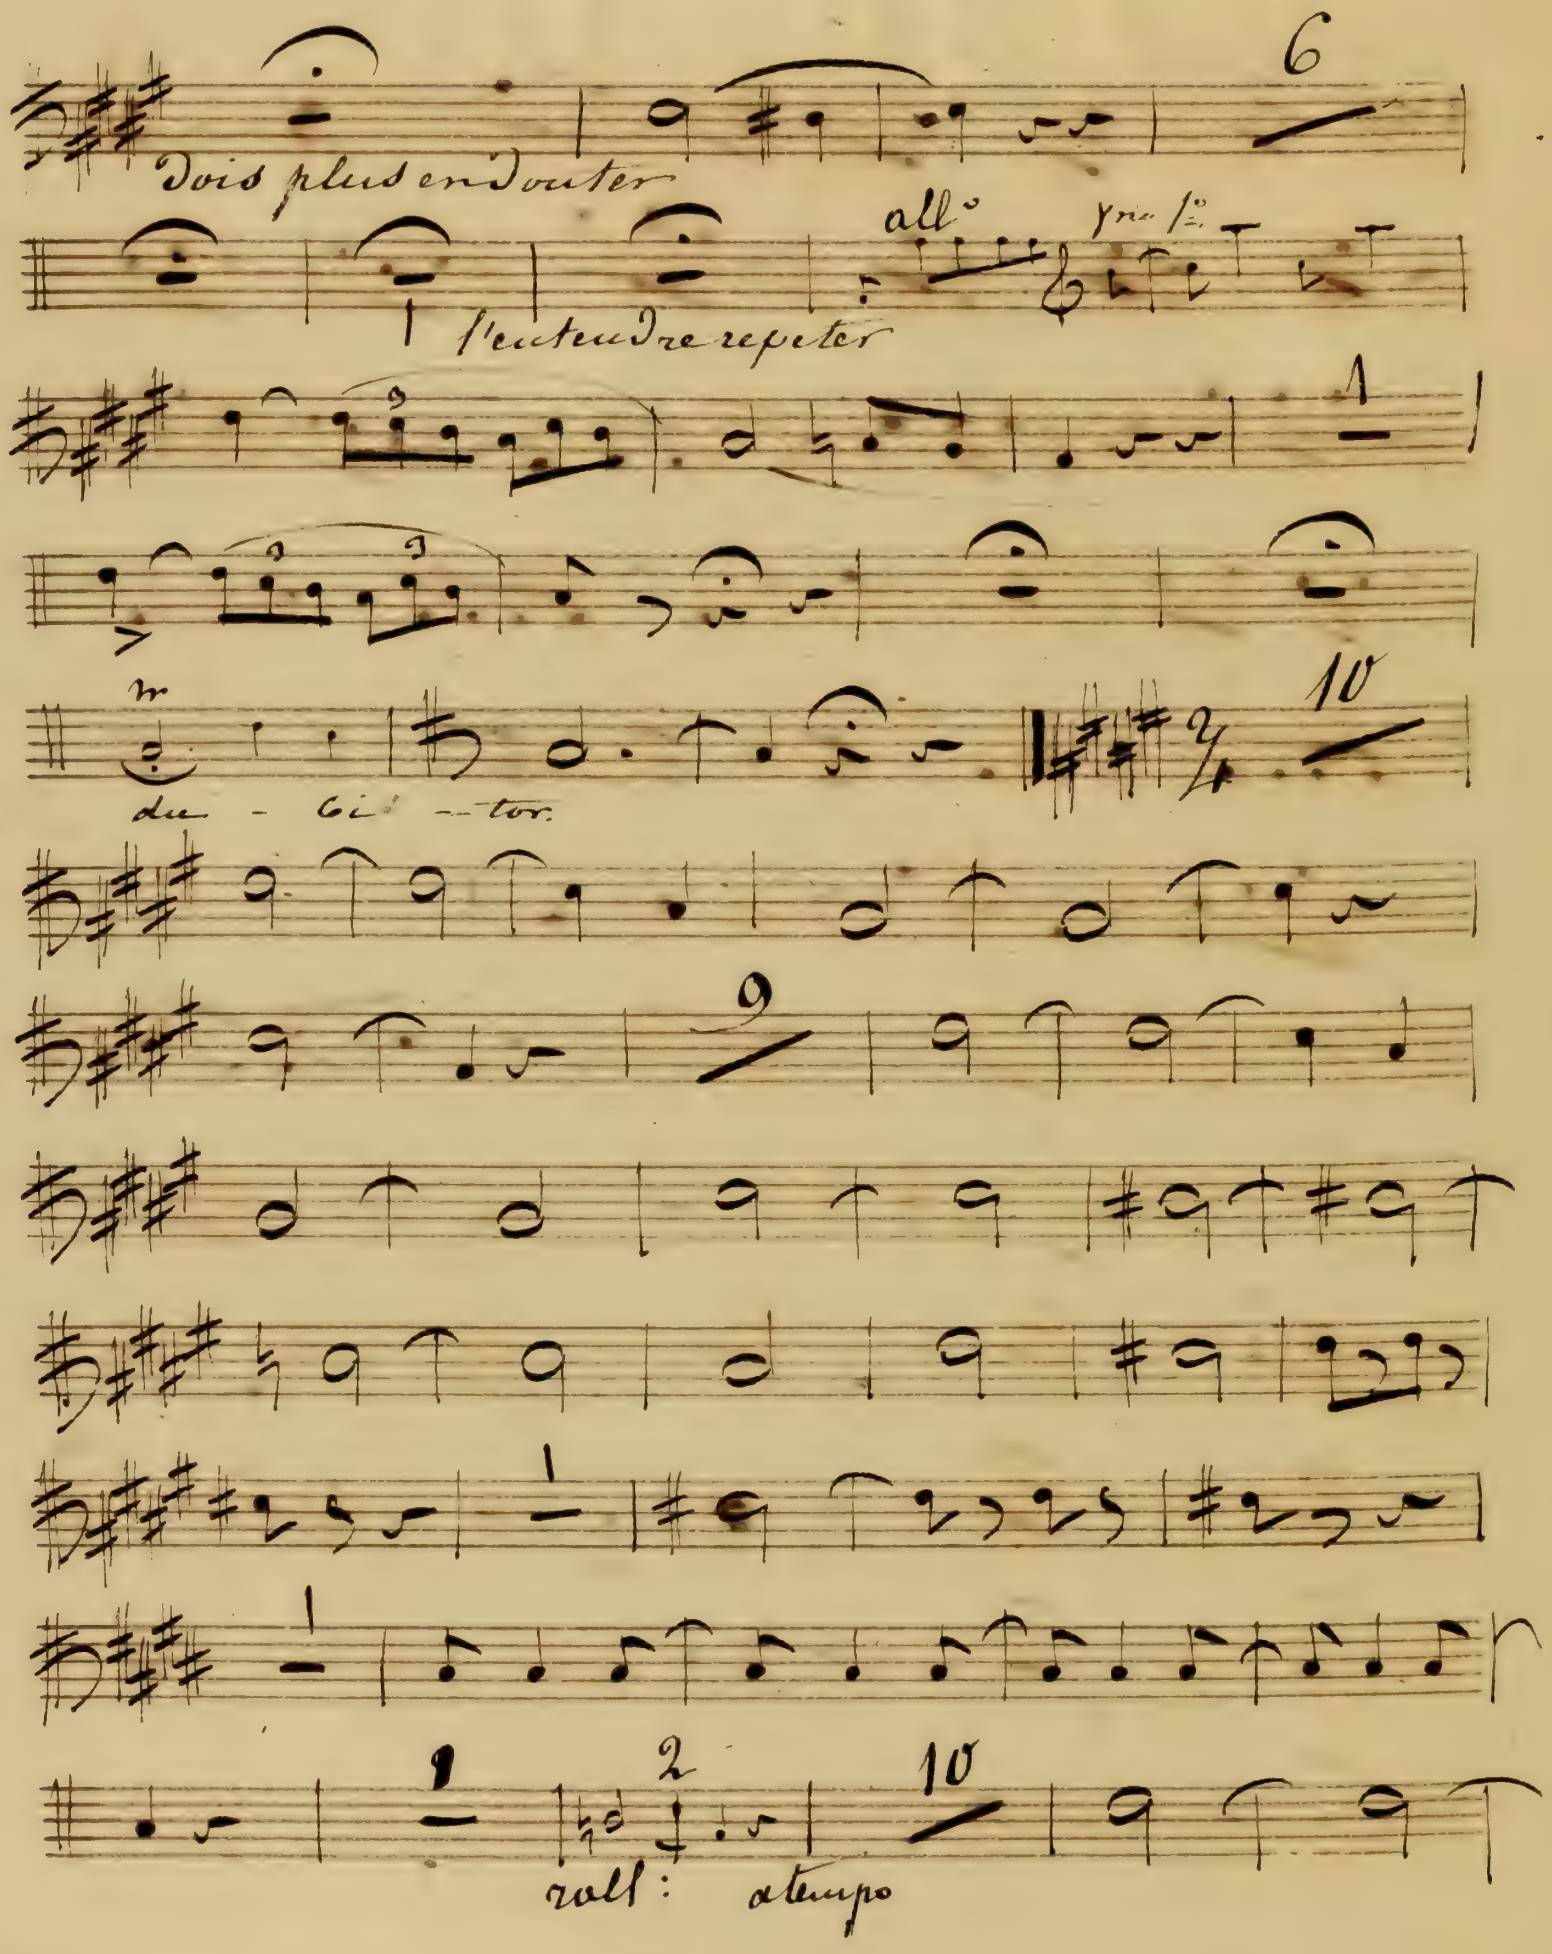 6
dois plus en douter
all°
1
l'entendre repeter
3
1
3 3
10
2/4
du - bi - tor.
9
1
1
1 2 10
rall: a tempo